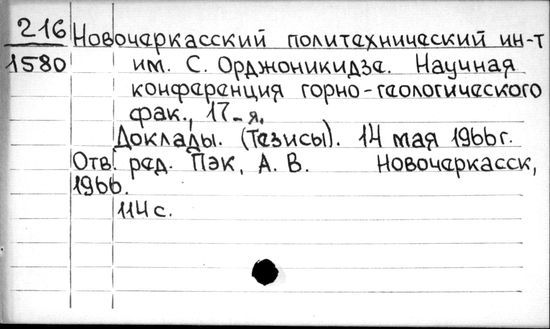 216
1580
Новочеркасский политехнический ин-т
им. С. Орджоникидзе. Научная
конференция горно-геологического
фак., 17-я.
Доклады. (Тезисы). 14 мая 1966г.
Отв. ред. Пэк, А. В. Новочеркасск,
1966.
114 с.